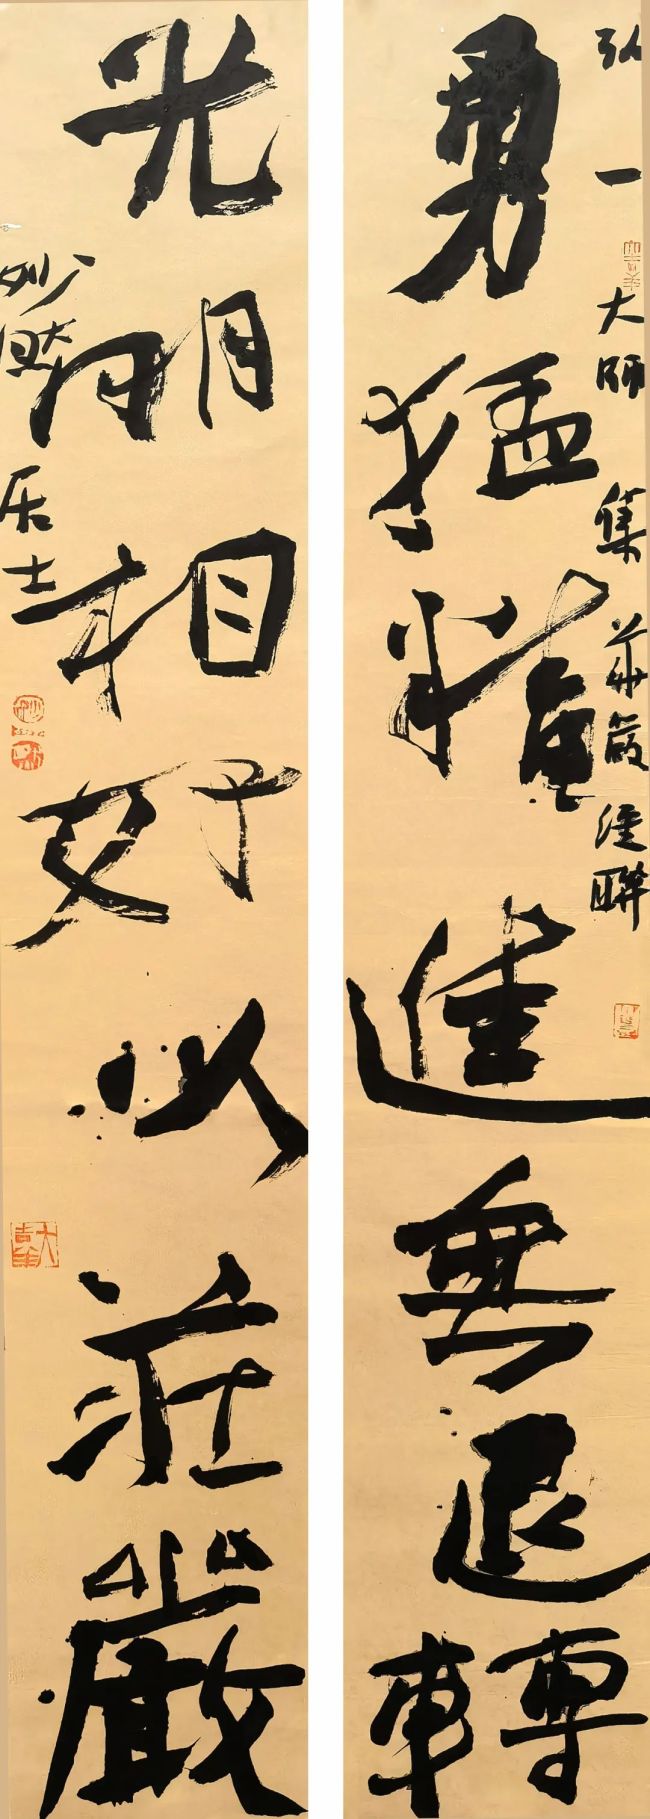 弘一大師集華嚴經聯
勇猛精進無退轉
光明相好以莊嚴
妙然居士